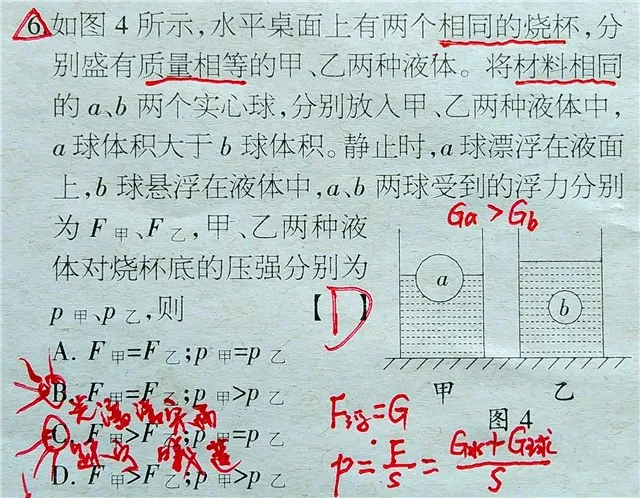 6.如图4所示,水平桌面上有两个相同的烧杯,分
别盛有质量相等的甲、乙两种液体。将材料相同
的a、b两个实心球,分别放入甲、乙两种液体中,
a球体积大于b球体积。静止时,a球漂浮在液面
上,b球悬浮在液体中,a、b两球受到的浮力分别
为F甲、F乙,甲、乙两种液
体对烧杯底的压强分别为
p甲、p乙,则 【D】
A. F甲=F乙;p甲=p乙
B. F甲=F乙;p甲>p乙
C. F甲>F乙;p甲=p乙
D. F甲>F乙;p甲>p乙
Ga>Gb
a
b
甲 乙
图4
F浮=G
p=F/S=(G水+G球)/S